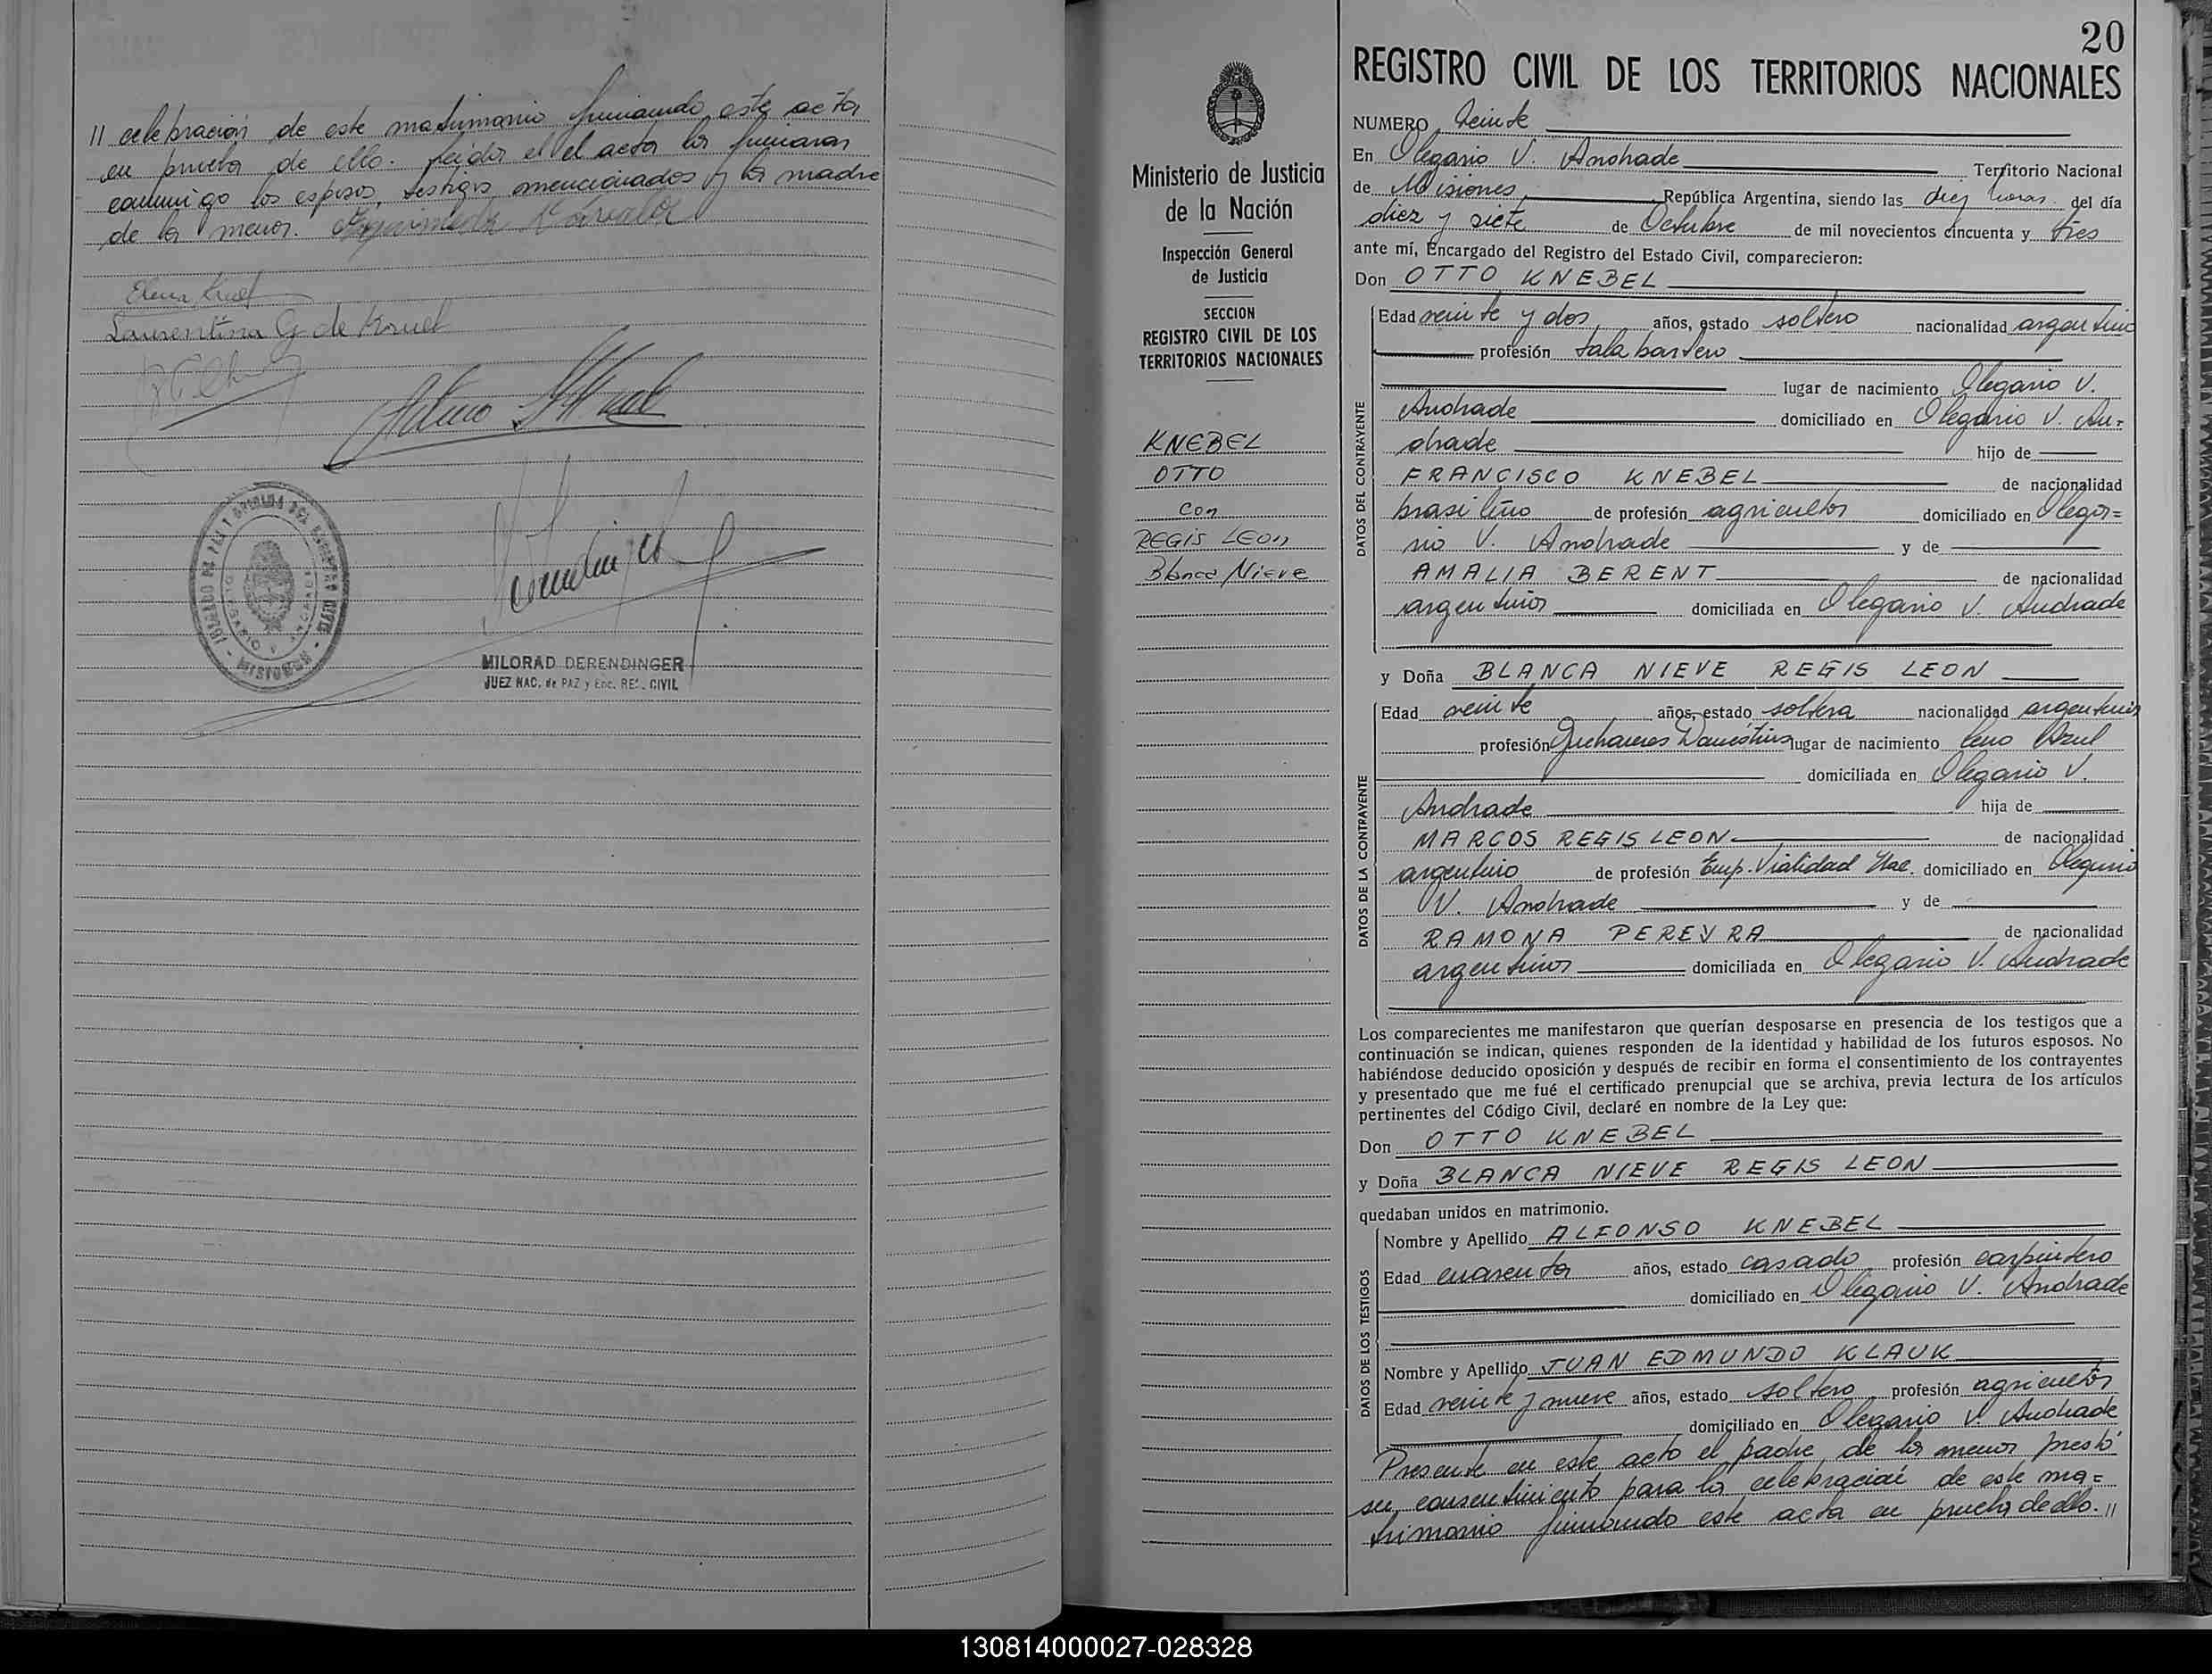 // celebración de este matrimonio firmando este acta
en prueba de ello. Leida el acta la firmaron
conmigo los esposos, testigos mencionados y la madre
de la menor.
Elena Kruel
Laurentina G de Kruel
Arturo
JUZGADO DE PAZ Y OFICINA DEL REGISTRO CIVIL
- MISIONES -
MILORAD DERENDINGER
JUEZ NAC. de PAZ y Enc. REG. CIVIL
Ministerio de Justicia
de la Nación
Inspección General
de Justicia
SECCION
REGISTRO CIVIL DE LOS
TERRITORIOS NACIONALES
KNEBEL
OTTO
con
REGIS LEON
Blanca Nieve
20
REGISTRO CIVIL DE LOS TERRITORIOS NACIONALES
NUMERO Veinte
En Olegario V. Andrade Territorio Nacional
de Misiones, República Argentina, siendo las diez horas del día
diez y siete de Octubre de mil novecientos cincuenta y tres
ante mí, Encargado del Registro del Estado Civil, comparecieron:
Don OTTO KNEBEL
DATOS DEL CONTRAYENTE
Edad veinte y dos años, estado soltero nacionalidad argentino
profesión talabartero
lugar de nacimiento Olegario V.
Andrade domiciliado en Olegario V. An-
drade hijo de
FRANCISCO KNEBEL de nacionalidad
brasileño de profesión agricultor domiciliado en Olega=
rio V. Andrade y de
AMALIA BERENT de nacionalidad
argentina domiciliada en Olegario V. Andrade
y Doña BLANCA NIEVE REGIS LEON
DATOS DE LA CONTRAYENTE
Edad veinte años, estado soltera nacionalidad argentina
profesión Quehaceres Domésticos lugar de nacimiento Cerro Azul
domiciliada en Olegario V.
Andrade hija de
MARCOS REGIS LEON de nacionalidad
argentino de profesión Emp. Vialidad Nac. domiciliado en Olegario
V. Andrade y de
RAMONA PEREYRA de nacionalidad
argentina domiciliada en Olegario V. Andrade
Los comparecientes me manifestaron que querían desposarse en presencia de los testigos que a
continuación se indican, quienes responden de la identidad y habilidad de los futuros esposos. No
habiéndose deducido oposición y después de recibir en forma el consentimiento de los contrayentes
y presentado que me fué el certificado prenupcial que se archiva, previa lectura de los artículos
pertinentes del Código Civil, declaré en nombre de la Ley que:
Don OTTO KNEBEL
y Doña BLANCA NIEVE REGIS LEON
quedaban unidos en matrimonio.
DATOS DE LOS TESTIGOS
Nombre y Apellido ALFONSO KNEBEL
Edad cuarenta años, estado casado profesión carpintero
domiciliado en Olegario V. Andrade
Nombre y Apellido JUAN EDMUNDO KLAUK
Edad veinte y nueve años, estado soltero profesión agricultor
domiciliado en Olegario V. Andrade
Presente en este acto el padre de la menor prestó
su consentimiento para la celebración de este ma=
trimonio firmando este acta en prueba de ello. //
130814000027-028328